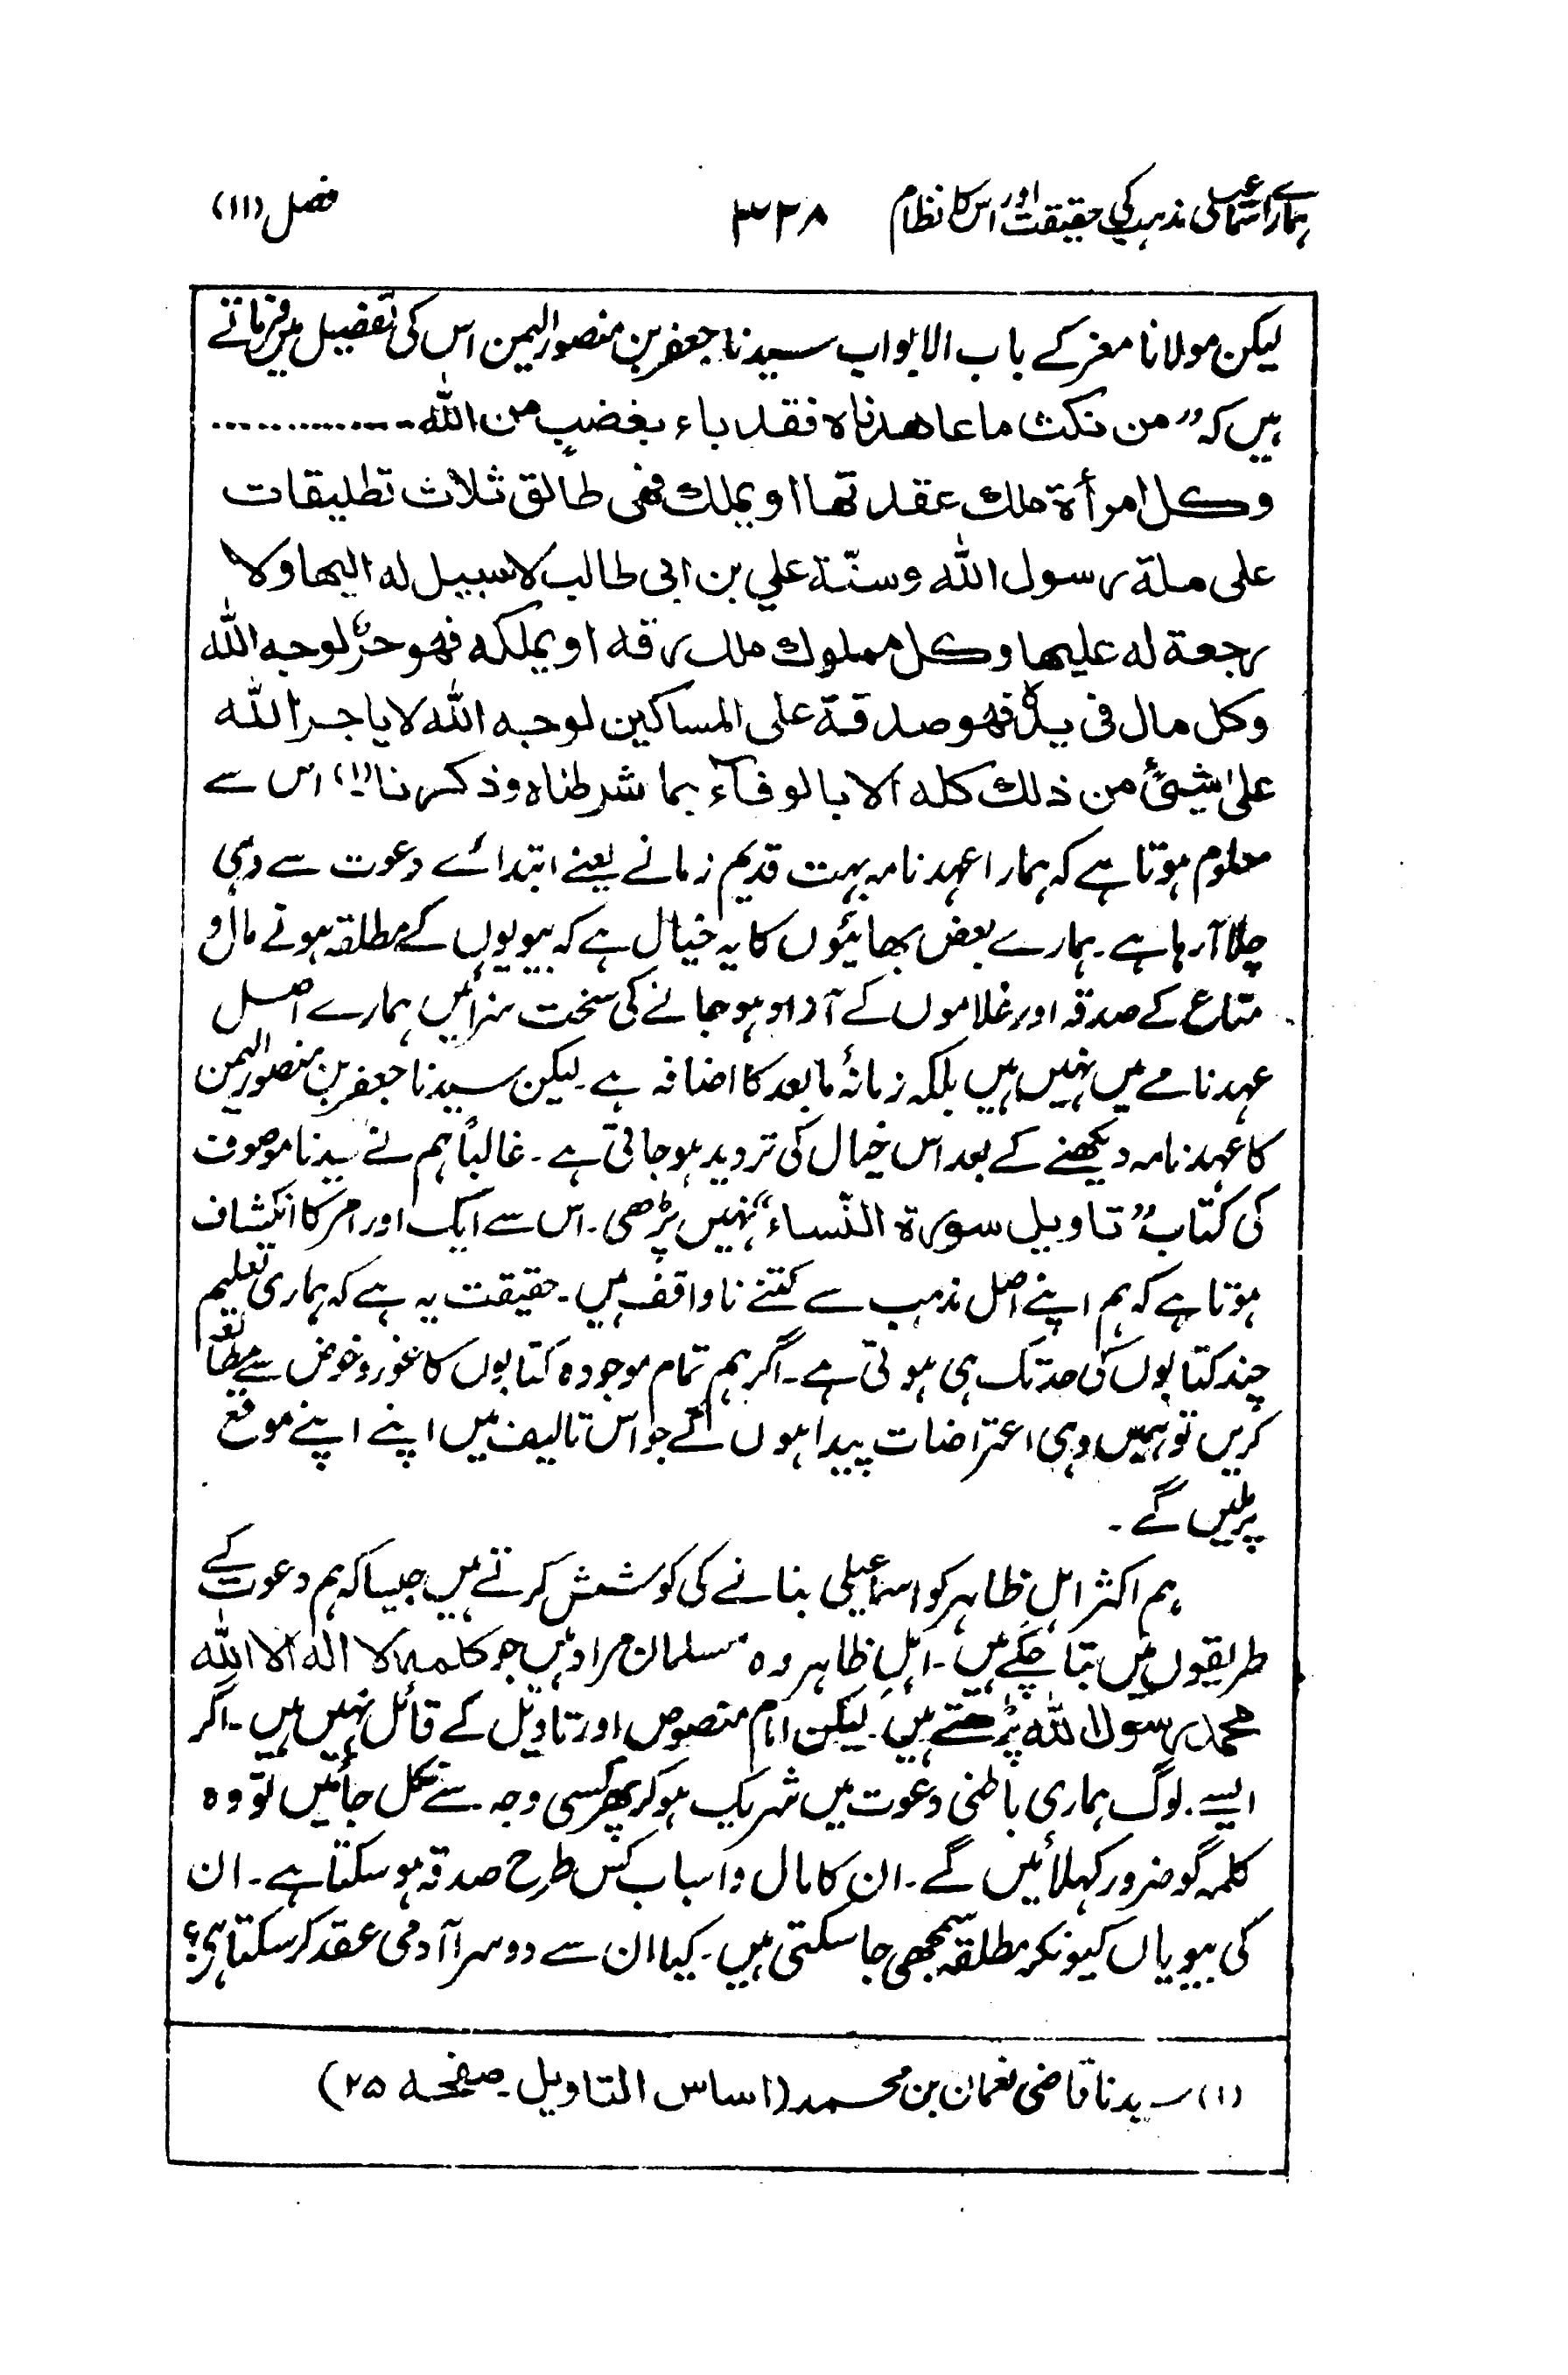 ہمارے اسماعیلی مذہب کی حقیقت اور اس کا نظام ۳۳۸ فصل (۱۱)
لیکن مولانا معز کے باب الابواب سیدنا جعفر بن منصور الیمن اس کی تفصیل میں فرماتے
ہیں کہ ”من نکث ما عاھدناہ فقد باء بغضبٍ من اللہ ..............
وکل امرأة ملك عقد تھا او یملك فھی طالق ثلاث تطلیقات
علی ملة رسول اللہ وسنّة علی بن ابی طالب لا سبیل له الیھا ولا
رجعة له علیھا وکل مملوك ملك رقه او یملکه فھو حرٌ لوجہ اللہ
وکل مال فی یدہ فھو صدقة علی المساکین لوجہ اللہ لا یاجر اللہ
علیٰ شیئٍ من ذلك کله الا بالوفاء بما شرطناہ وذکرنا(۱)“ اس سے
معلوم ہوتا ہے کہ ہمارا عہد نامہ بہت قدیم زمانے یعنے ابتدائے دعوت سے وہی
چلا آرہا ہے۔ ہمارے بعض بھائیوں کا یہ خیال ہے کہ بیویوں کے مطلقہ ہونے مال و
متاع کے صدقہ اور غلاموں کے آزاد ہو جانے کی سخت سزائیں ہمارے اصل
عہد نامے میں نہیں ہیں بلکہ زمانۂ مابعد کا اضافہ ہے۔ لیکن سیدنا جعفر بن منصور الیمن
کا عہد نامہ دیکھنے کے بعد اس خیال کی تردید ہو جاتی ہے۔ غالباً ہم نے سیدنا موصوف
کی کتاب ”تاویل سورة النّساء“ نہیں پڑھی۔ اس سے ایک اور امر کا انکشاف
ہوتا ہے کہ ہم اپنے اصل مذہب سے کتنے ناواقف ہیں۔ حقیقت یہ ہے کہ ہماری تعلیم
چند کتابوں کی حد تک ہی ہوتی ہے۔ اگر ہم تمام موجودہ کتابوں کا غور و خوض سے مطالعہ
کریں تو ہمیں وہی اعتراضات پیدا ہوں گے جو اس تالیف میں اپنے اپنے موقع
پر ملیں گے۔
ہم اکثر اہلِ ظاہر کو اسماعیلی بنانے کی کوشش کرتے ہیں جیسا کہ ہم دعوت کے
طریقوں میں بتا چکے ہیں۔ اہلِ ظاہر وہ مسلمان مراد ہیں جو کلمہ لا الہ الا اللہ
محمد رسول اللہ پڑھتے ہیں۔ لیکن امام منصوص اور تاویل کے قائل نہیں ہیں۔ اگر
ایسے لوگ ہماری باطنی دعوت میں شریک ہو کر پھر کسی وجہ سے نکل جائیں تو وہ
کلمہ گو ضرور کہلائیں گے۔ ان کا مال و اسباب کس طرح صدقہ ہو سکتا ہے۔ ان
کی بیویاں کیونکر مطلقہ سمجھی جا سکتی ہیں۔ کیا ان سے دوسرا آدمی عقد کر سکتا ہی؟
(۱) سیدنا قاضی نعمان بن محمد (اساس التاویل۔ صفحہ ۲۵)